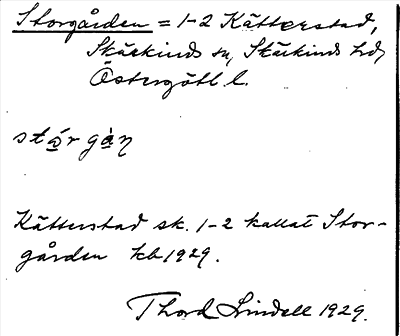 Storgården = 1-2 Kätterstad,
Skärkinds sn, Skärkinds hd,
Östergötl l.
stǫ́r gą̀ŋ
Kätterstad sk. 1-2 kallat Stor-
gården kb 1929.
Thord Lindell 1929.